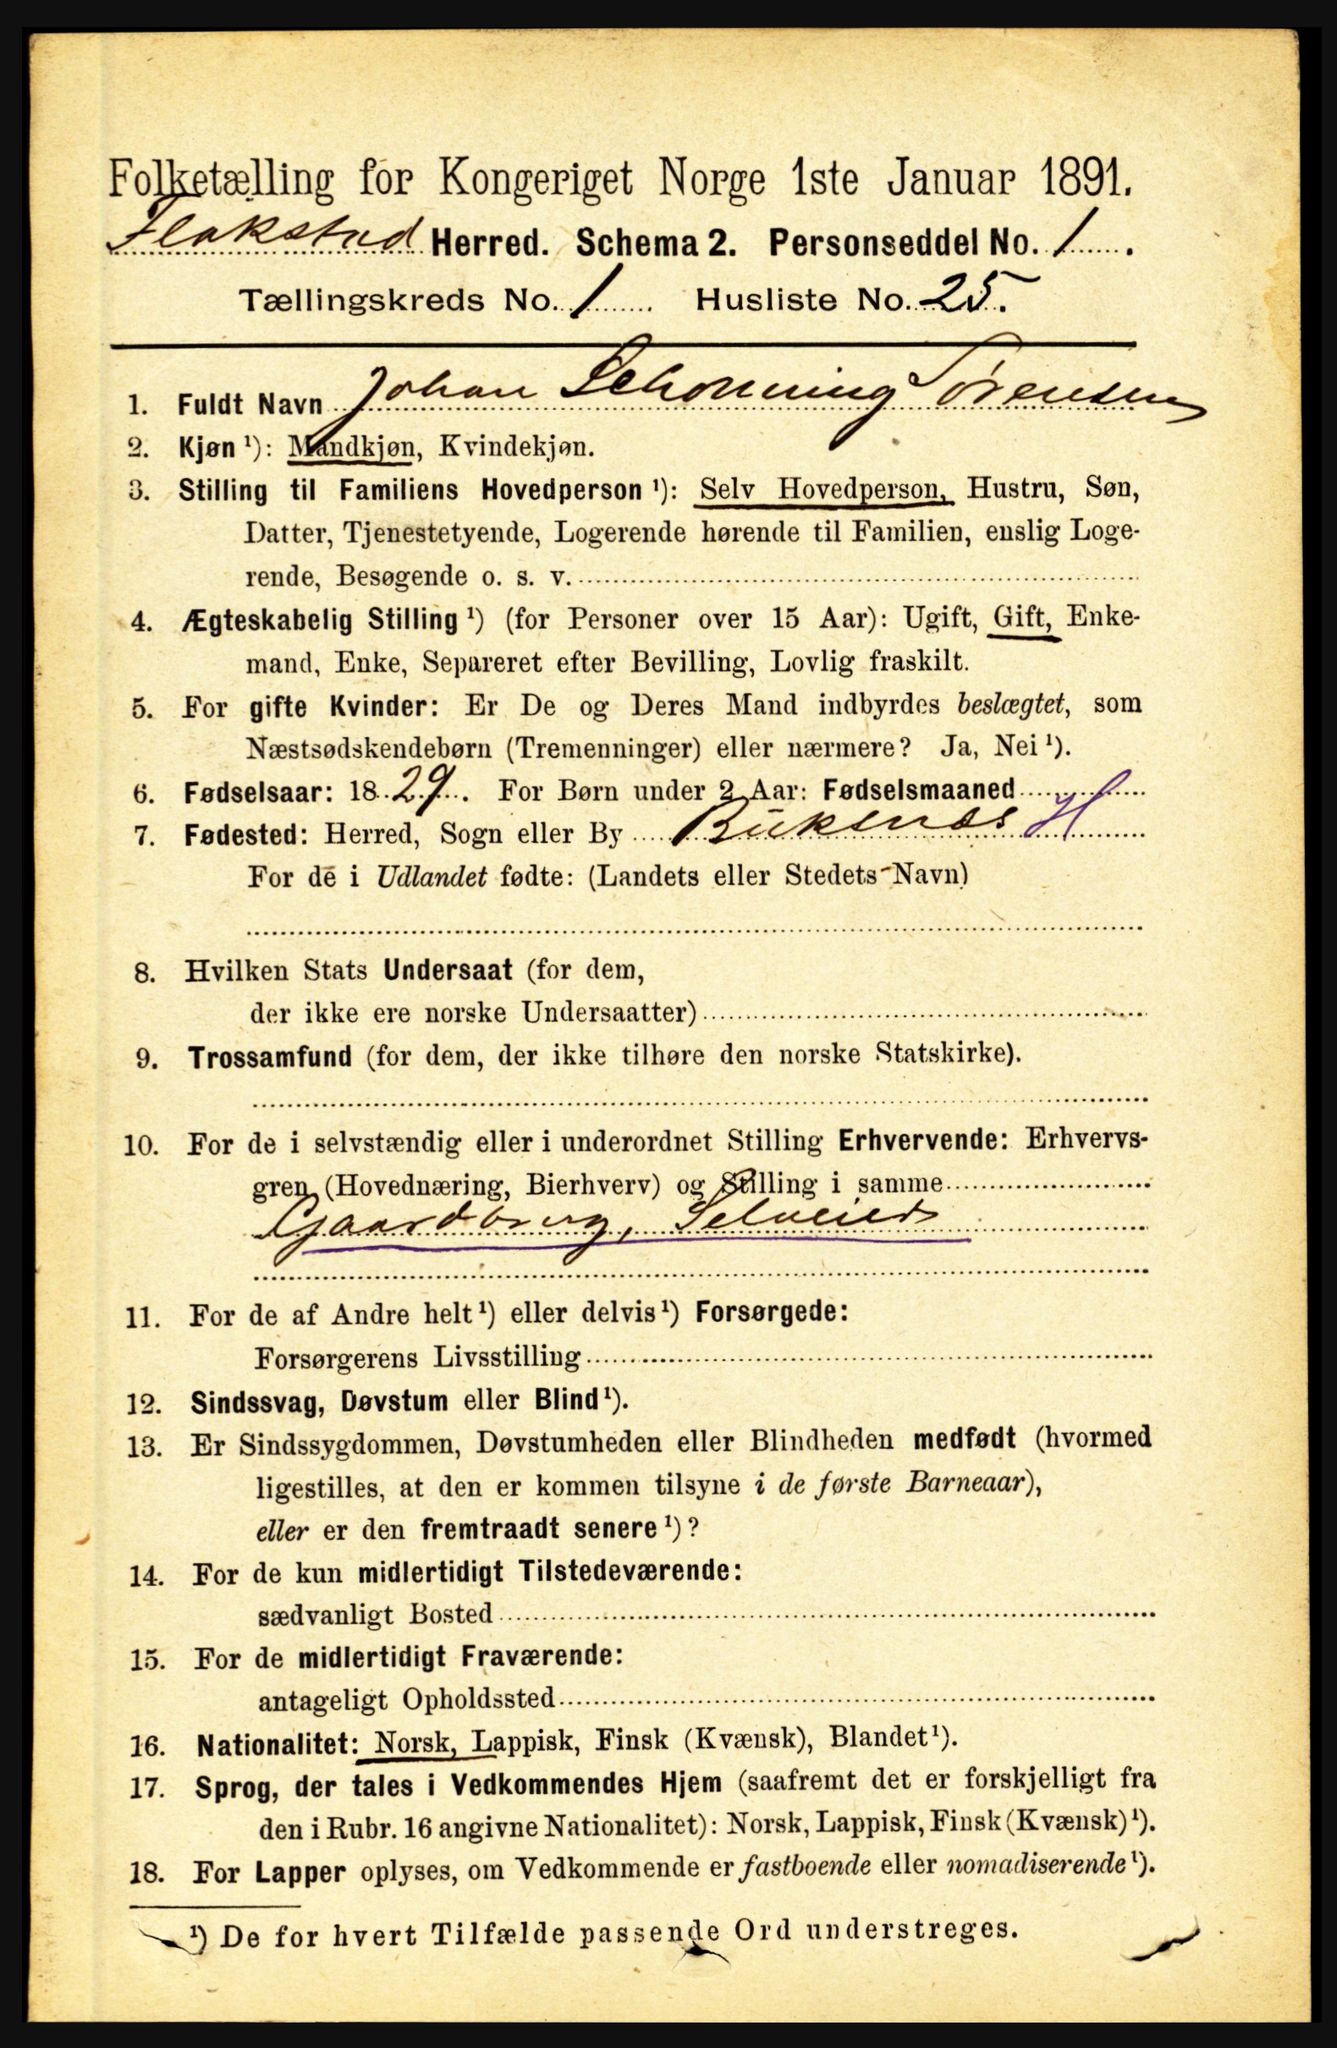 Folketælling for Kongeriget Norge 1ste Januar 1891.
Flakstad Herred. Schema 2. Personseddel No. 1.
Tællingskreds No. 1 Husliste No. 25.
1. Fuldt Navn Johan Schonning Sørensen
2. Kjøn ¹): Mandkjøn, Kvindekjøn.
3. Stilling til Familiens Hovedperson ¹): Selv Hovedperson, Hustru, Søn,
Datter, Tjenestetyende, Logerende hørende til Familien, enslig Loge-
rende, Besøgende o. s. v.
4. Ægteskabelig Stilling ¹) (for Personer over 15 Aar): Ugift, Gift, Enke-
mand, Enke, Separeret efter Bevilling, Lovlig fraskilt.
5. For gifte Kvinder: Er De og Deres Mand indbyrdes beslægtet, som
Næstsødskendebørn (Tremenninger) eller nærmere? Ja, Nei ¹).
6. Fødselsaar: 1829. For Børn under 2 Aar: Fødselsmaaned
7. Fødested: Herred, Sogn eller By Buksnæs H
For de i Udlandet fødte: (Landets eller Stedets Navn)
8. Hvilken Stats Undersaat (for dem,
der ikke ere norske Undersaatter)
9. Trossamfund (for dem, der ikke tilhøre den norske Statskirke).
10. For de i selvstændig eller i underordnet Stilling Erhvervende: Erhvervs-
gren (Hovednæring, Bierhverv) og Stilling i samme
Gaardbrug, Selveier
11. For de af Andre helt ¹) eller delvis ¹) Forsørgede:
Forsørgerens Livsstilling
12. Sindssvag, Døvstum eller Blind ¹).
13. Er Sindssygdommen, Døvstumheden eller Blindheden medfødt (hvormed
ligestilles, at den er kommen tilsyne i de første Barneaar),
eller er den fremtraadt senere ¹)?
14. For de kun midlertidigt Tilstedeværende:
sædvanligt Bosted
15. For de midlertidigt Fraværende:
antageligt Opholdssted
16. Nationalitet: Norsk, Lappisk, Finsk (Kvænsk), Blandet ¹).
17. Sprog, der tales i Vedkommendes Hjem (saafremt det er forskjelligt fra
den i Rubr. 16 angivne Nationalitet): Norsk, Lappisk, Finsk (Kvænsk) ¹).
18. For Lapper oplyses, om Vedkommende er fastboende eller nomadiserende ¹).
¹) De for hvert Tilfælde passende Ord understreges.